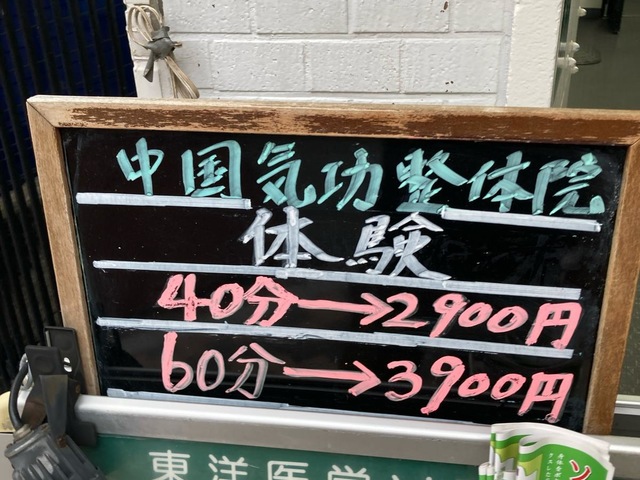 中国気功整体院
体験
40分→2900円
60分→3900円
東洋医学